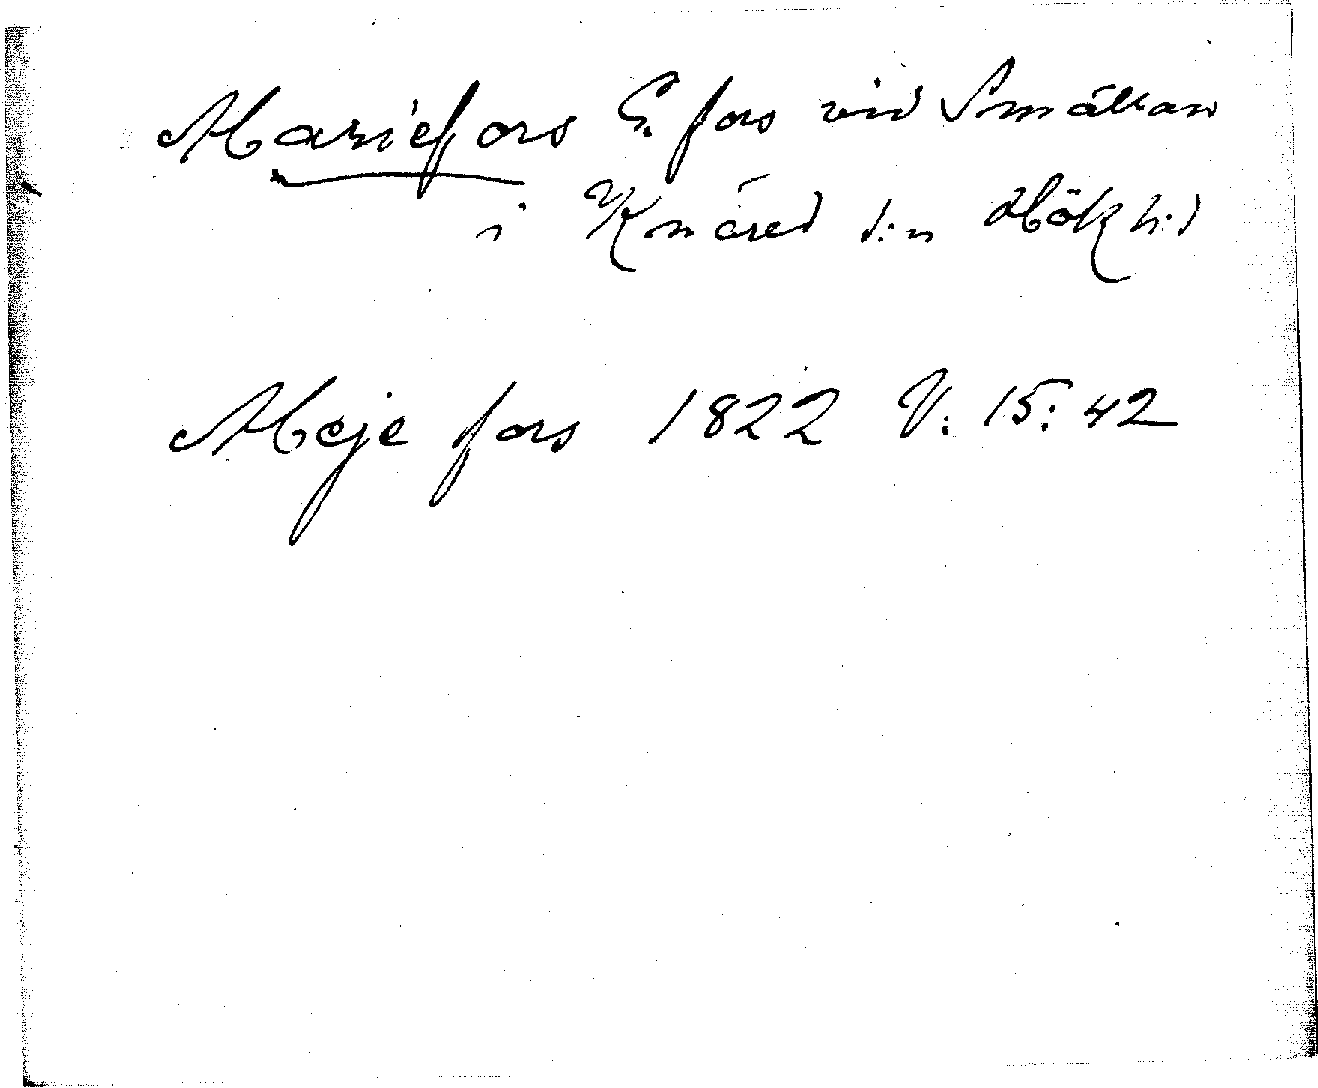 Mariefors G. fors vid Smällan
i Knäred s:n Hök h:d
Meje fors 1822 V: 15: 42